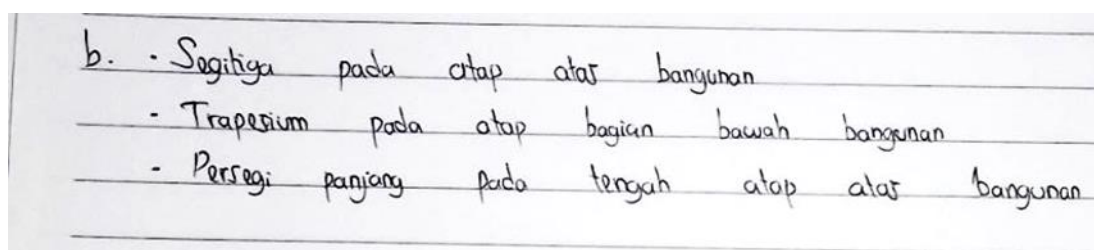 b. - Segitiga pada atap atas bangunan
- Trapesium pada atap bagian bawah bangunan
- Persegi panjang pada tengah atap atas bangunan